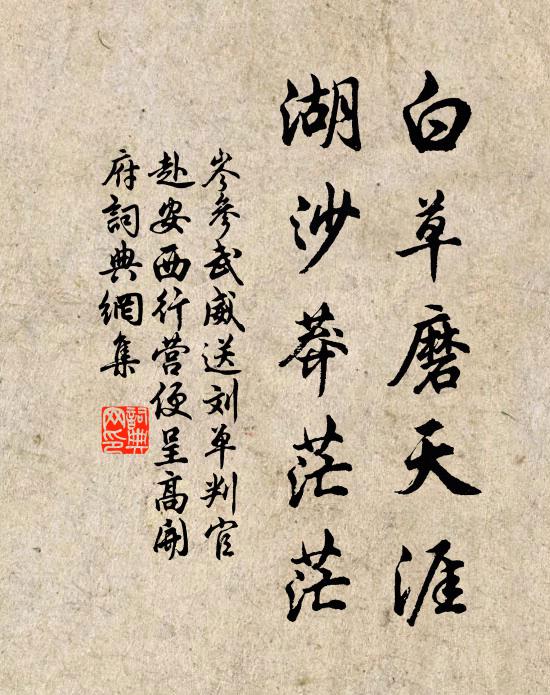 白草磨天涯
湖沙莽茫茫
岑參武威送刘单判官
赴安西行营便呈高開
府詞典網集
詞典
网印